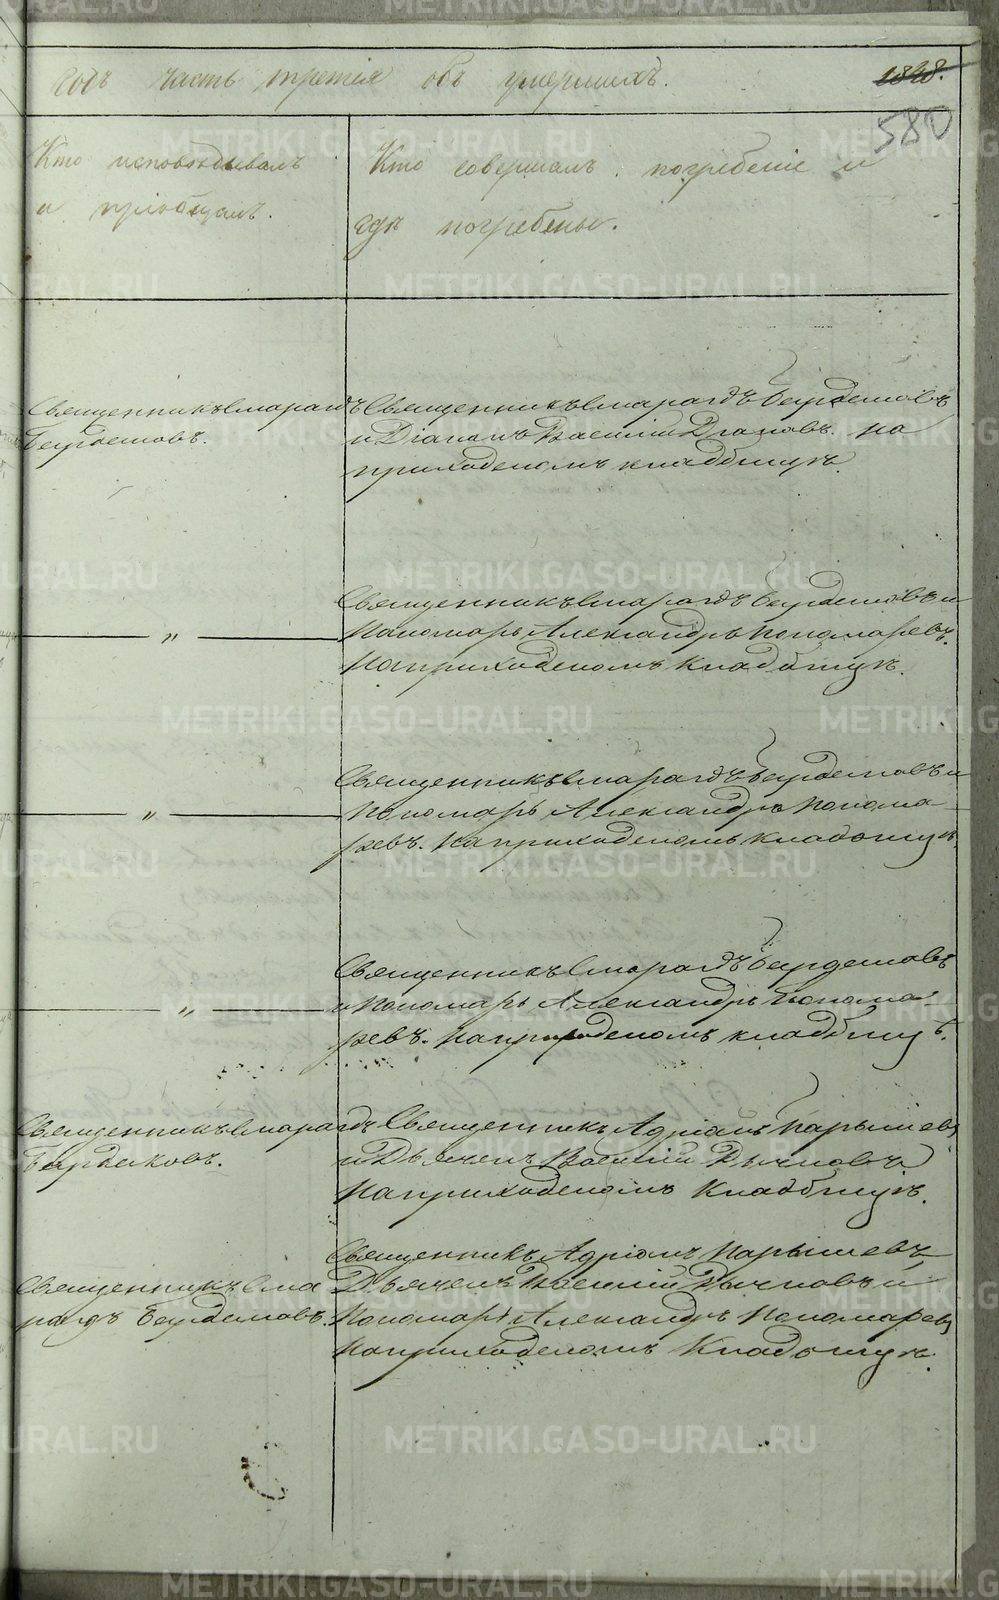 годъ часть третія объ умершихъ. 1848.
580
Кто исповѣдывалъ
и пріобщалъ.
Кто совершалъ погребеніе и
гдѣ погребены.
Священникъ Смарагдъ
Бердешовъ.
Священникъ Смарагдъ Бердешовъ
и Діаконъ Василій на
приходскомъ кладбищѣ.
Священникъ Смарагдъ Бердешовъ и
Пономарь Александръ Пономаревъ.
На приходскомъ кладбищѣ.
Священникъ Смарагдъ Бердешовъ и
Пономарь Александръ Понома
ревъ. На приходскомъ кладбищѣ.
Священникъ Смарагдъ Бердешовъ
и Пономарь Александръ Понома
ревъ. На приходскомъ кладбищѣ.
Священникъ Смарагдъ
Священникъ Адріанъ Парышевъ
и Дьячекъ Василій
На приходскомъ кладбищѣ.
Священникъ Сма
рагдъ Бердешовъ.
Священникъ Адріанъ Парышевъ,
Дьячекъ Василій и
Пономарь Александръ Пономаревъ
На приходскомъ кладбищѣ.
METRIKI.GASO-URAL.RU